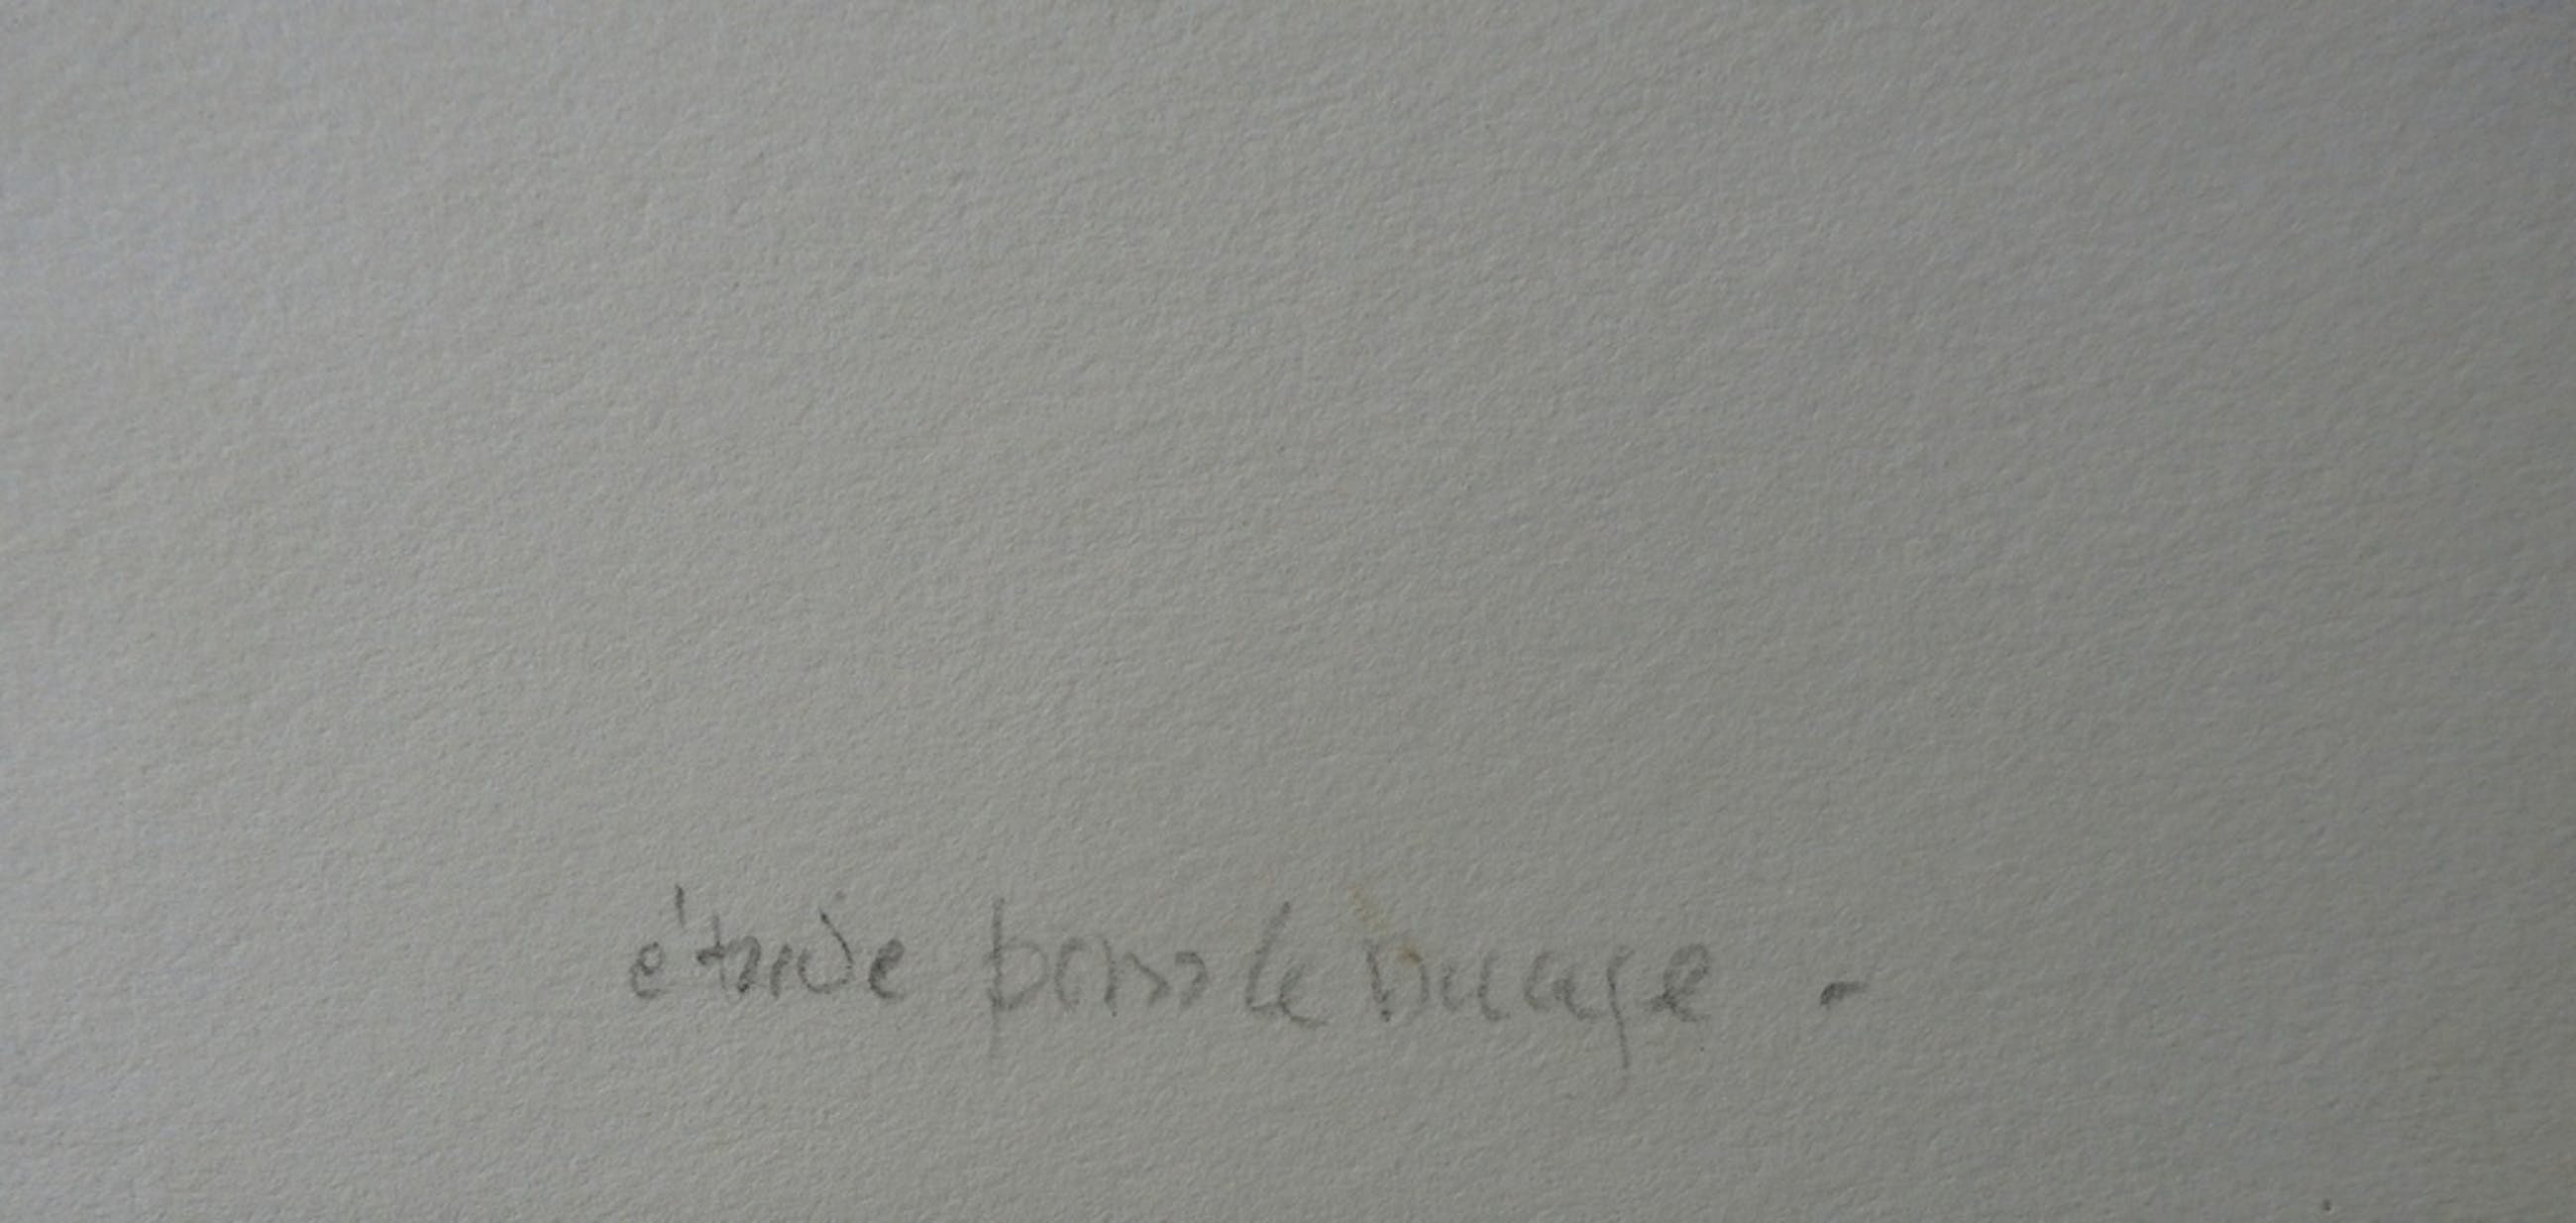 étude pour le nuage -